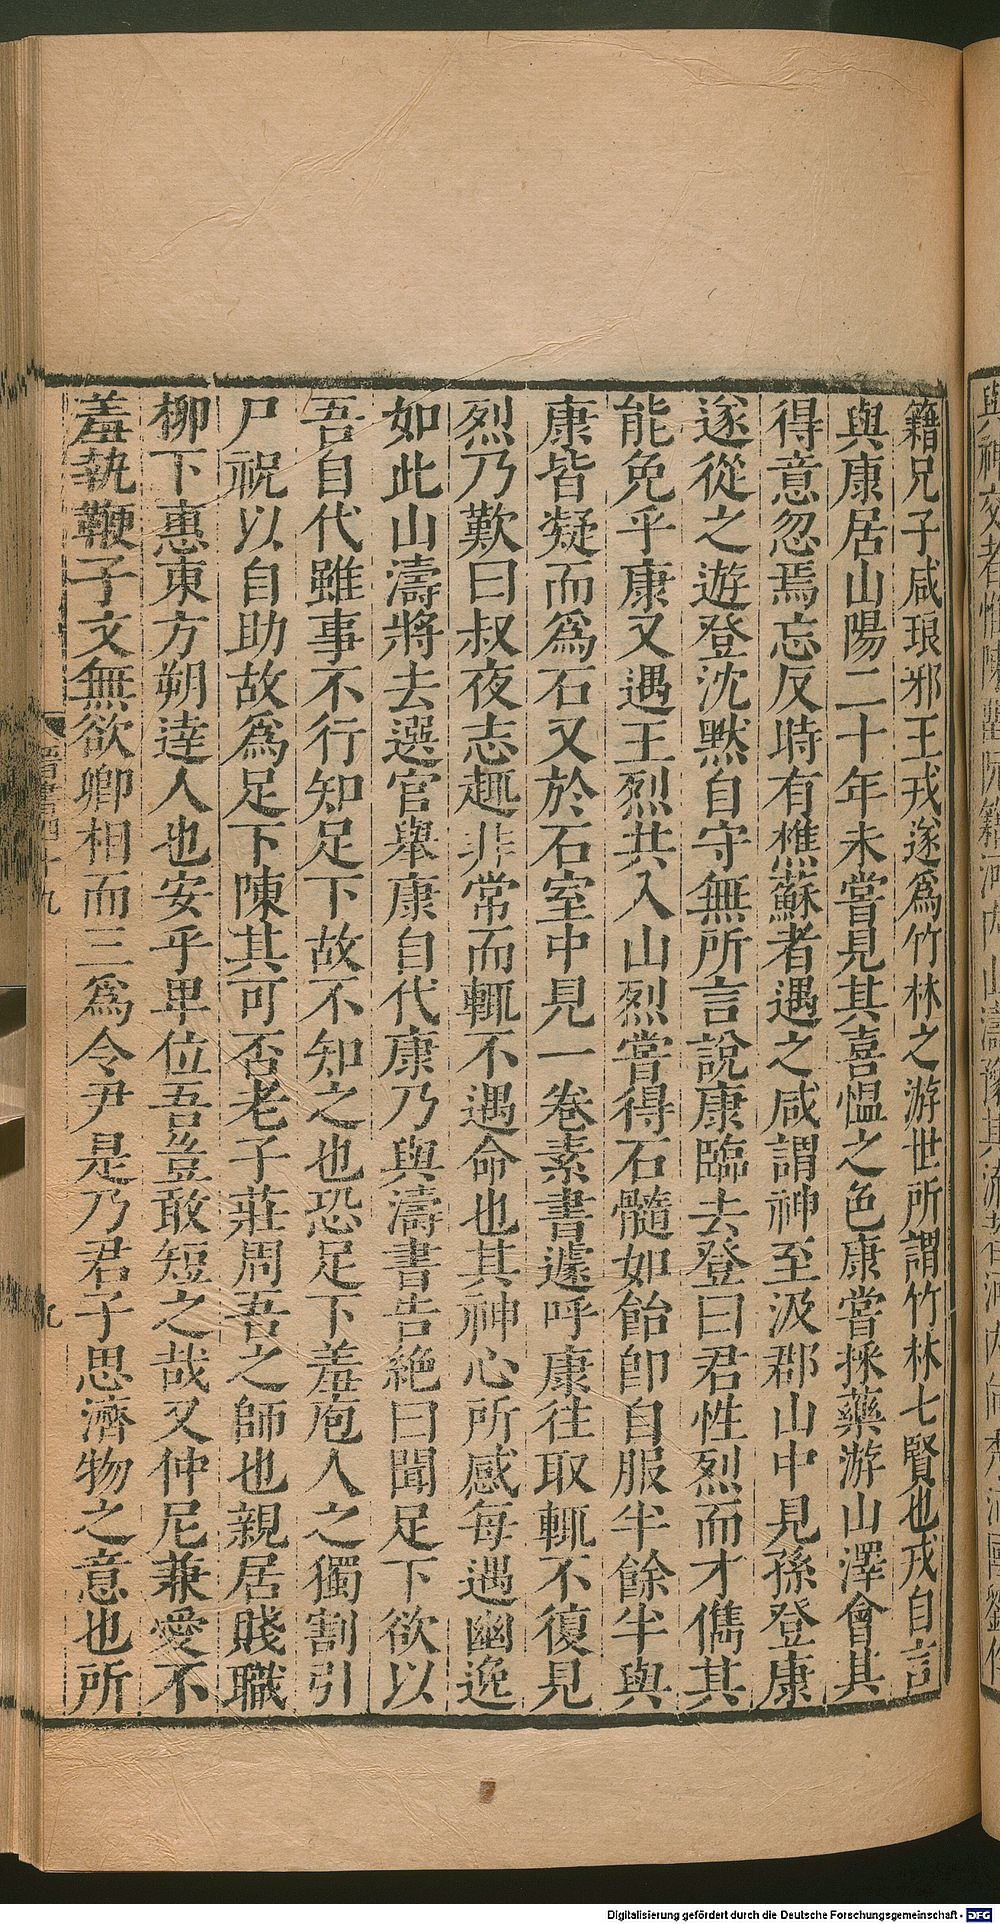 籍兄子咸琅邪王戎遂爲竹林之游世所謂竹林七賢也戎自言
與康居山陽二十年未嘗見其喜慍之色康嘗採藥游山澤會其
得意忽焉忘反時有樵蘇者遇之咸謂神至汲郡山中見孫登康
遂從之遊登沈默自守無所言說康臨去登曰君性烈而才儁其
能免乎康又遇王烈共入山烈嘗得石髓如飴卽自服半餘半與
康皆凝而爲石又於石室中見一卷素書遽呼康往取輒不復見
烈乃歎曰叔夜志趣非常而輒不遇命也其神心所感每遇幽逸
如此山濤將去選官舉康自代康乃與濤書告絶曰聞足下欲以
吾自代雖事不行知足下故不知之也恐足下羞庖人之獨割引
尸祝以自助故爲足下陳其可否老子莊周吾之師也親居賤職
柳下惠東方朔達人也安乎卑位吾豈敢短之哉又仲尼兼愛不
羞執鞭子文無欲卿相而三爲令尹是乃君子思濟物之意也所
晉書四十九
九
Digitalisierung gefördert durch die Deutsche Forschungsgemeinschaft - DFG